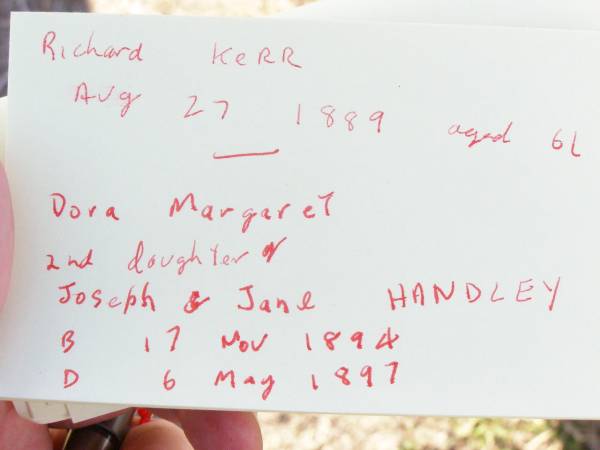 Richard KeRR
Aug 27 1889 aged 61
Dora Margaret
2nd daughter of
Joseph & Jane HANDLEY
B 17 Nov 1894
D 6 May 1897